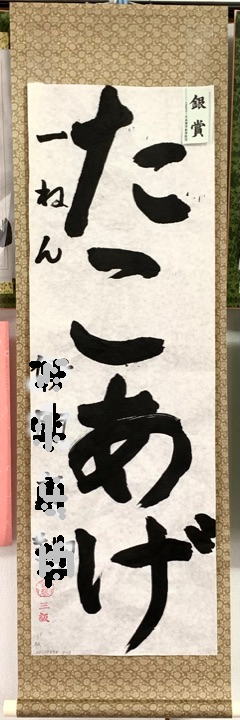 銀賞
たこあげ
一ねん
三級